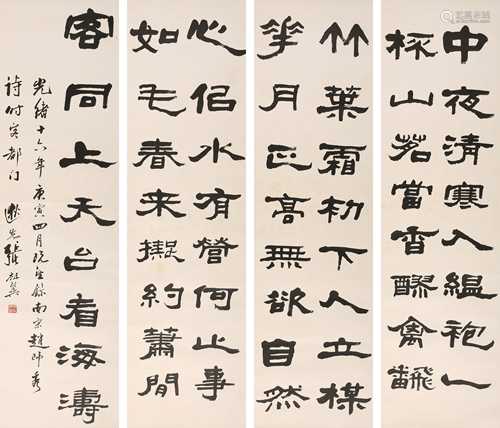 中夜清寒入縕袍一
杯山茗當香醪禽飜
竹葉霜初下人立楳
華月正高無欲自然
心佀水有營何止事
如毛春来擬約蕭閒
客同上天台看海濤
光緒十六年庚寅四月既望錄南宋趙師秀
詩時客都門 逖先張祖翼